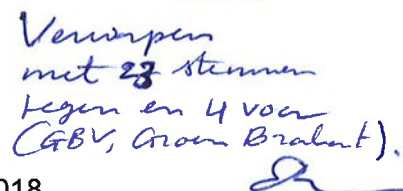 Verworpen
met 23 stemmen
tegen en 4 voor
(GBV, Groen Brabant).
018